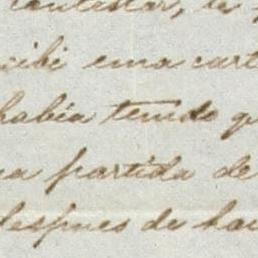 contestar, la
cibi una cart
habia tenido q
na partida de
despues de hau